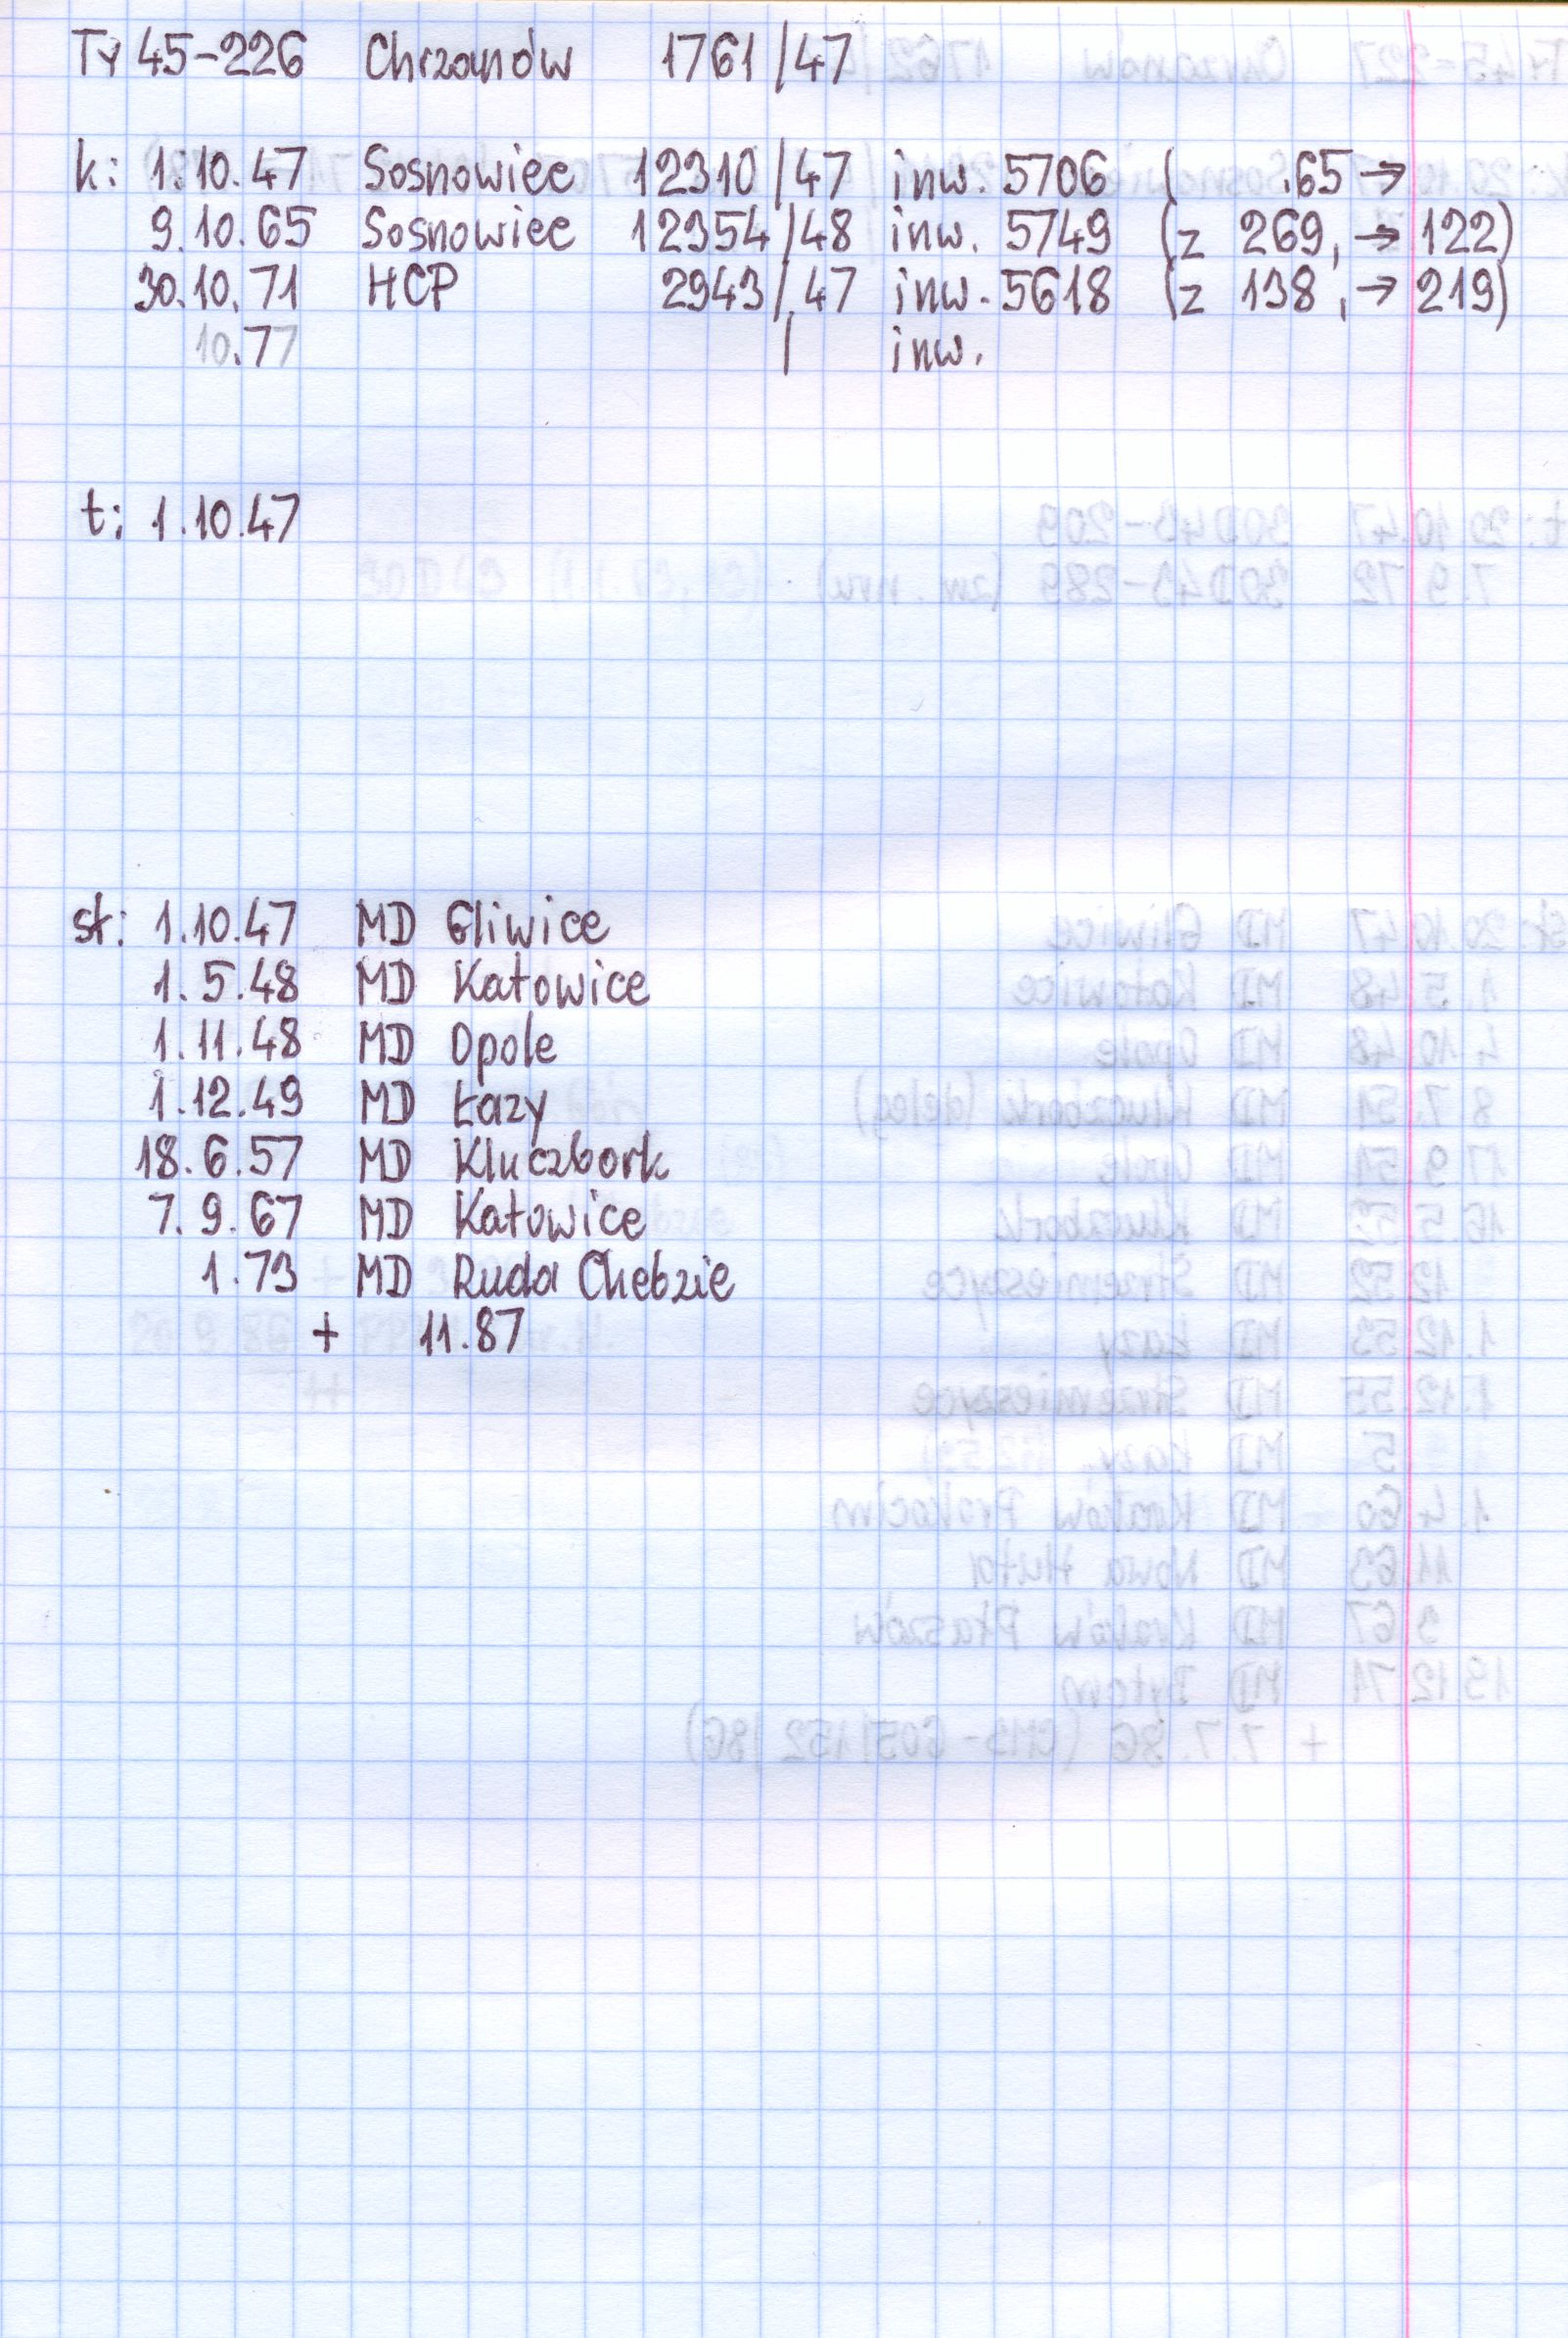 Ty 45-226 Chrzanów 1761/47
k: 1.10.47 Sosnowiec 12310/47 inw. 5706 ( .65 →
9.10.65 Sosnowiec 12354/48 inw. 5749 (z 269, → 122)
30.10.71 HCP 2943/47 inw. 5618 (z 138, → 219)
10.77 / inw.
t: 1.10.47
st: 1.10.47 MD Gliwice
1.5.48 MD Katowice
1.11.48 MD Opole
1.12.49 MD Łazy
18.6.57 MD Kluczbork
7.9.67 MD Katowice
1.73 MD Ruda Chebzie
+ 11.87